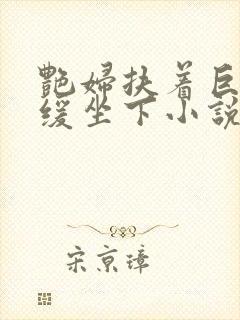 艷婦扶着巨
缓坐下小說
宋京璋